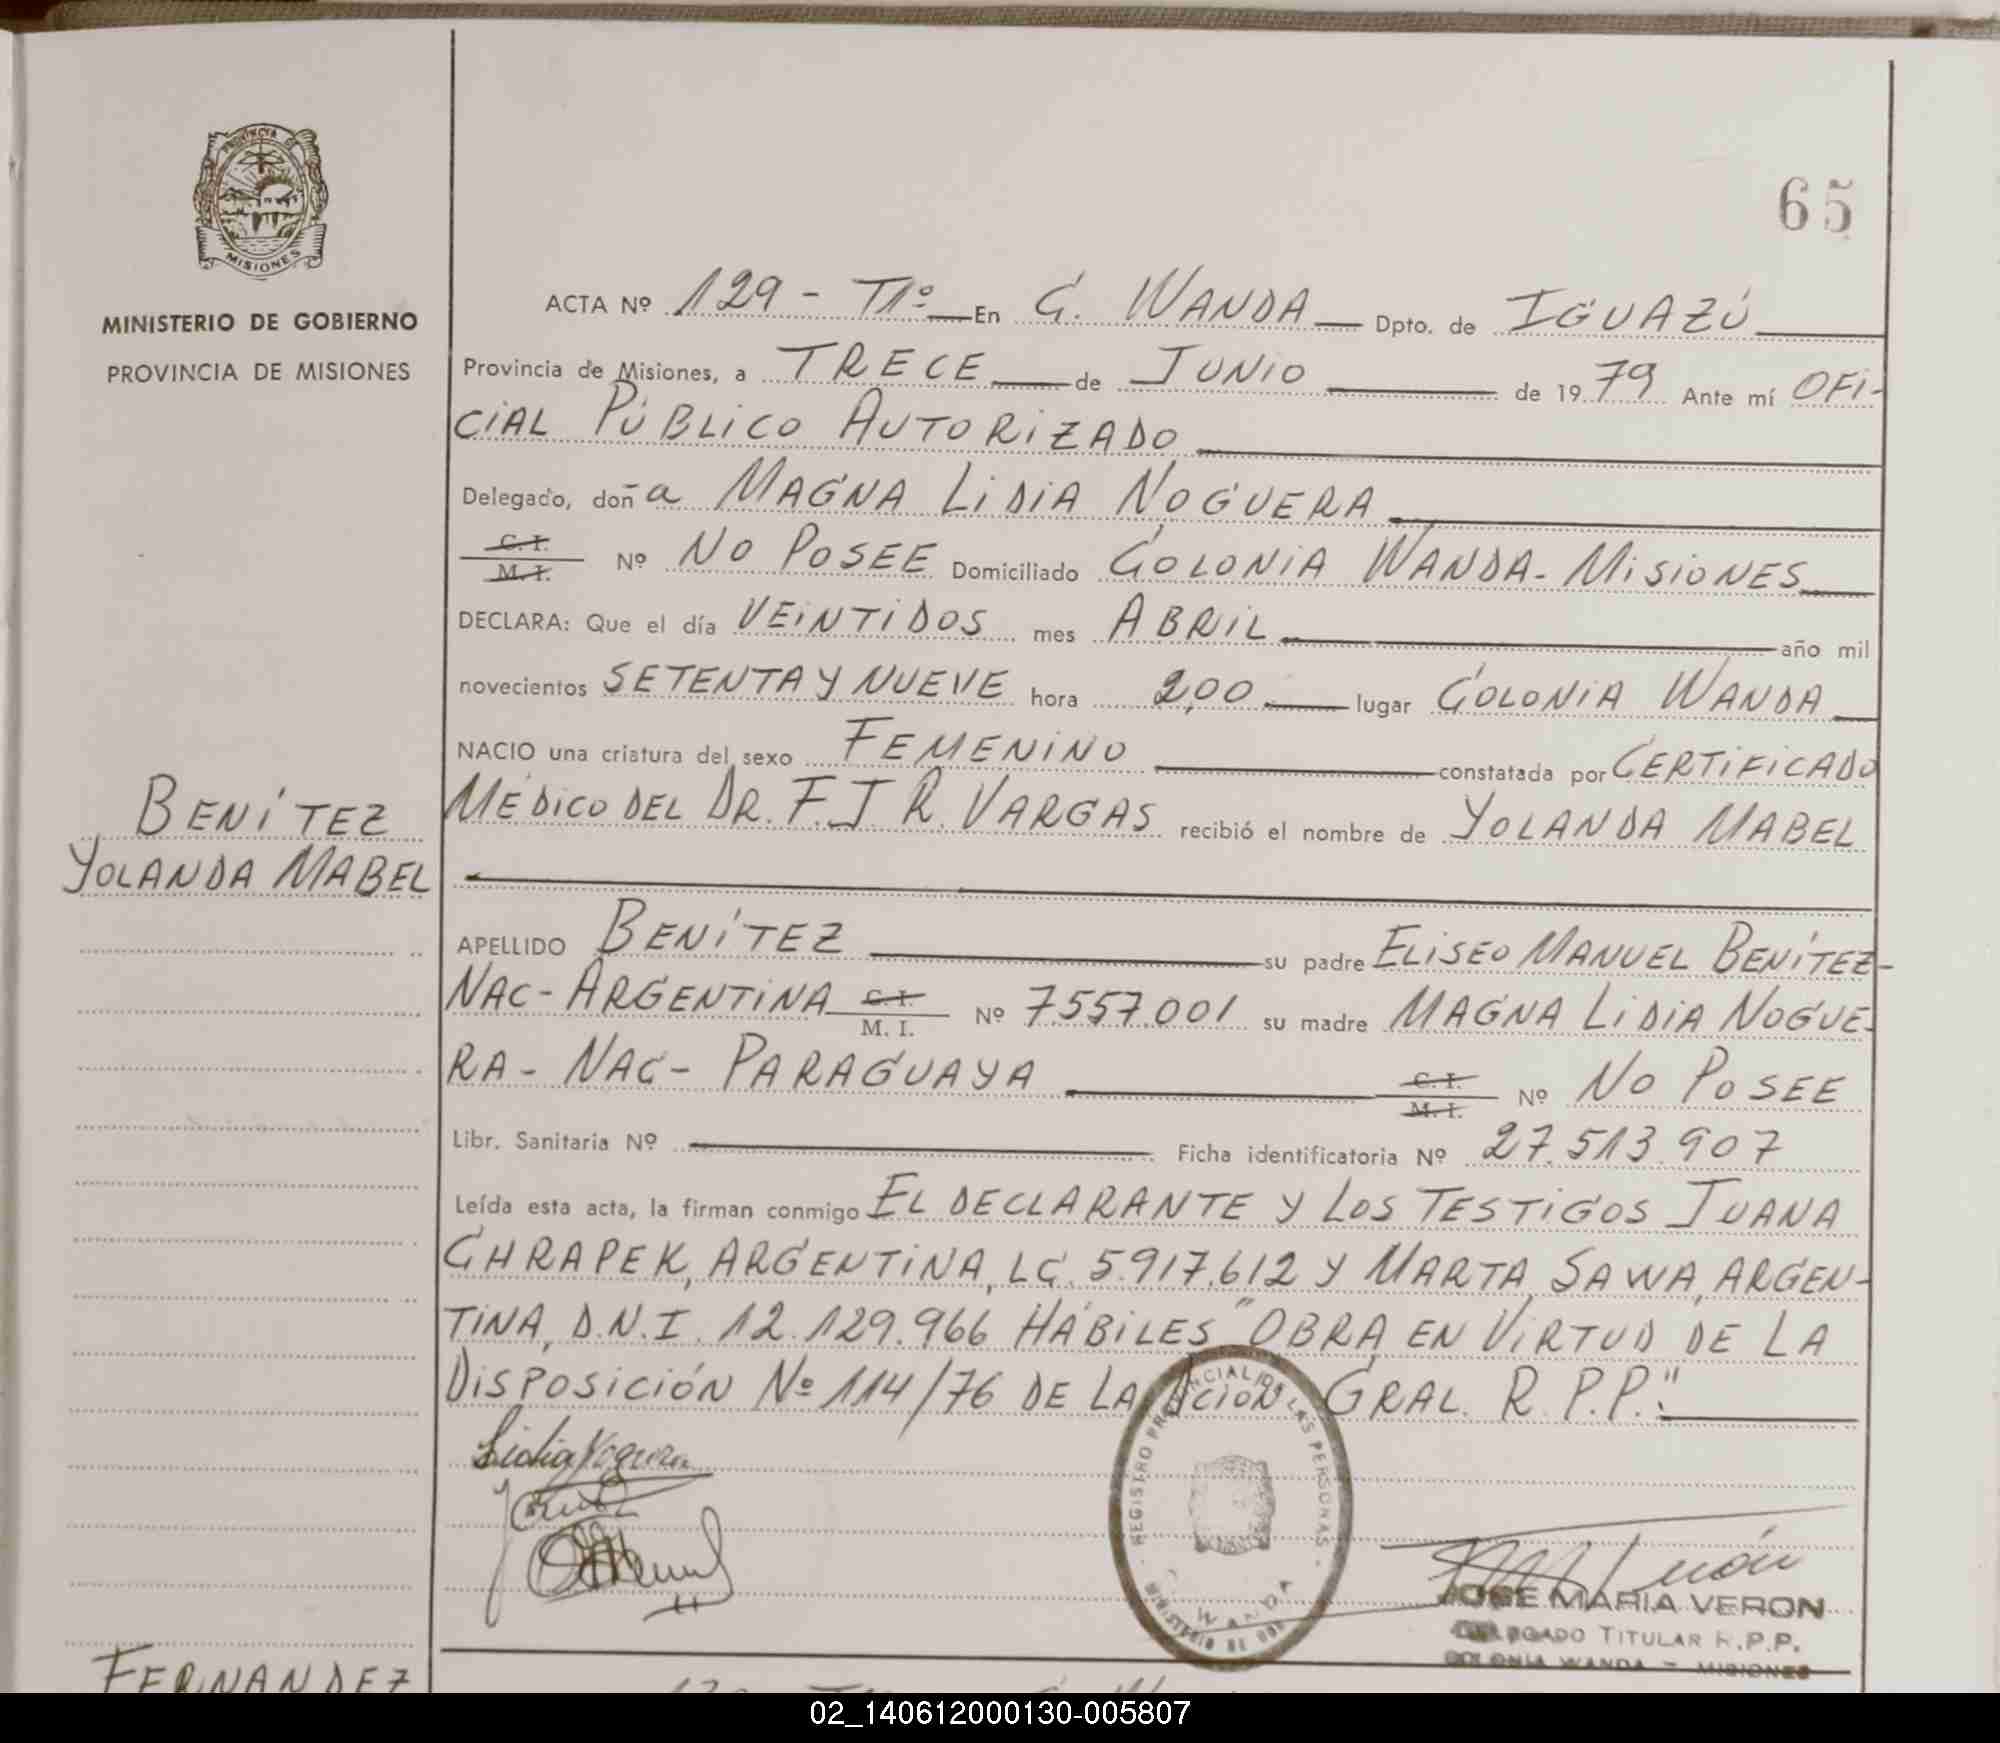 65
PROVINCIA DE
MISIONES
MINISTERIO DE GOBIERNO
PROVINCIA DE MISIONES
ACTA Nº 129 - T1º En C. WANDA Dpto. de IGUAZÚ
Provincia de Misiones, a TRECE de JUNIO de 1979 Ante mí OFI-
CIAL PÚBLICO AUTORIZADO
Delegado, doña MAGNA LIDIA NOGUERA
C. I.
M. I. Nº NO POSEE Domiciliado COLONIA WANDA - MISIONES
DECLARA: Que el día VEINTIDOS mes ABRIL año mil
novecientos SETENTA Y NUEVE hora 2,00 lugar COLONIA WANDA
NACIO una criatura del sexo FEMENINO constatada por CERTIFICADO
MÉDICO DEL DR. F. J. R. VARGAS recibió el nombre de YOLANDA MABEL
BENÍTEZ
YOLANDA MABEL
APELLIDO BENÍTEZ su padre ELISEO MANUEL BENÍTEZ-
NAC- ARGENTINA C. I.
M. I. Nº 7.557.001 su madre MAGNA LIDIA NOGUE-
RA - NAC - PARAGUAYA C. I.
M. I. Nº NO POSEE
Libr. Sanitaria Nº Ficha identificatoria Nº 27.513.907
Leída esta acta, la firman conmigo EL DECLARANTE Y LOS TESTIGOS JUANA
CHRAPEK, ARGENTINA, LC. 5.917.612 Y MARTA SAWA, ARGEN-
TINA, D.N.I. 12.129.966 HÁBILES "OBRA EN VIRTUD DE LA
DISPOSICIÓN Nº 114/76 DE LA DCION GRAL. R. P.P."
Lidia Noguera
REGISTRO PROVINCIAL DE LAS PERSONAS
MINISTERIO DE GOB
WANDA
JOSE MARIA VERON
DELEGADO TITULAR R.P.P.
COLONIA WANDA - MISIONES
FERNANDEZ
02_140612000130-005807